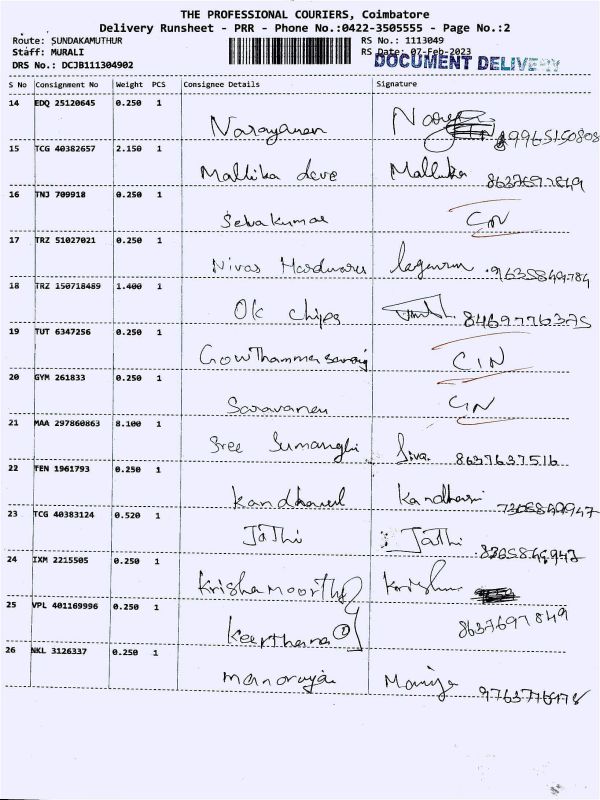 THE PROFESSIONAL COURIERS, Coimbatore
Delivery Runsheet - PRR - Phone No.:0422-3505555 - Page No.:2
Route: SUNDAKAMUTHUR RS No.: 1113049
Staff: MURALI RS Date: 07-Feb-2023
DRS No.: DCJB111304902 DOCUMENT DELIVERY
S No Consignment No Weight PCS Consignee Details Signature
14 EDQ 25120645 0.250 1
Narayanan
15 TCG 40382657 2.150 1
Mallika deve Mallika 8637697849
16 TNJ 709918 0.250 1
Selvakumar CIN
17 TRZ 51027021 0.250 1
Nivas Hardwares 9635849784
18 TRZ 150718489 1.400 1
Ok chips 8469776375
19 TUT 6347256 0.250 1
CIN
20 GYM 261833 0.250 1
Saravanan CIN
21 MAA 297860863 8.100 1
Sree Sumangli Siva 8637637516
22 TEN 1961793 0.250 1
Kandhavel 7368849947
23 TCG 40383124 0.520 1
Jothi Jothi
24 IXM 2215505 0.250 1
Krishamoorthy
25 VPL 401169996 0.250 1
Keerthana 8637697849
26 NKL 3126337 0.250 1
manoraja